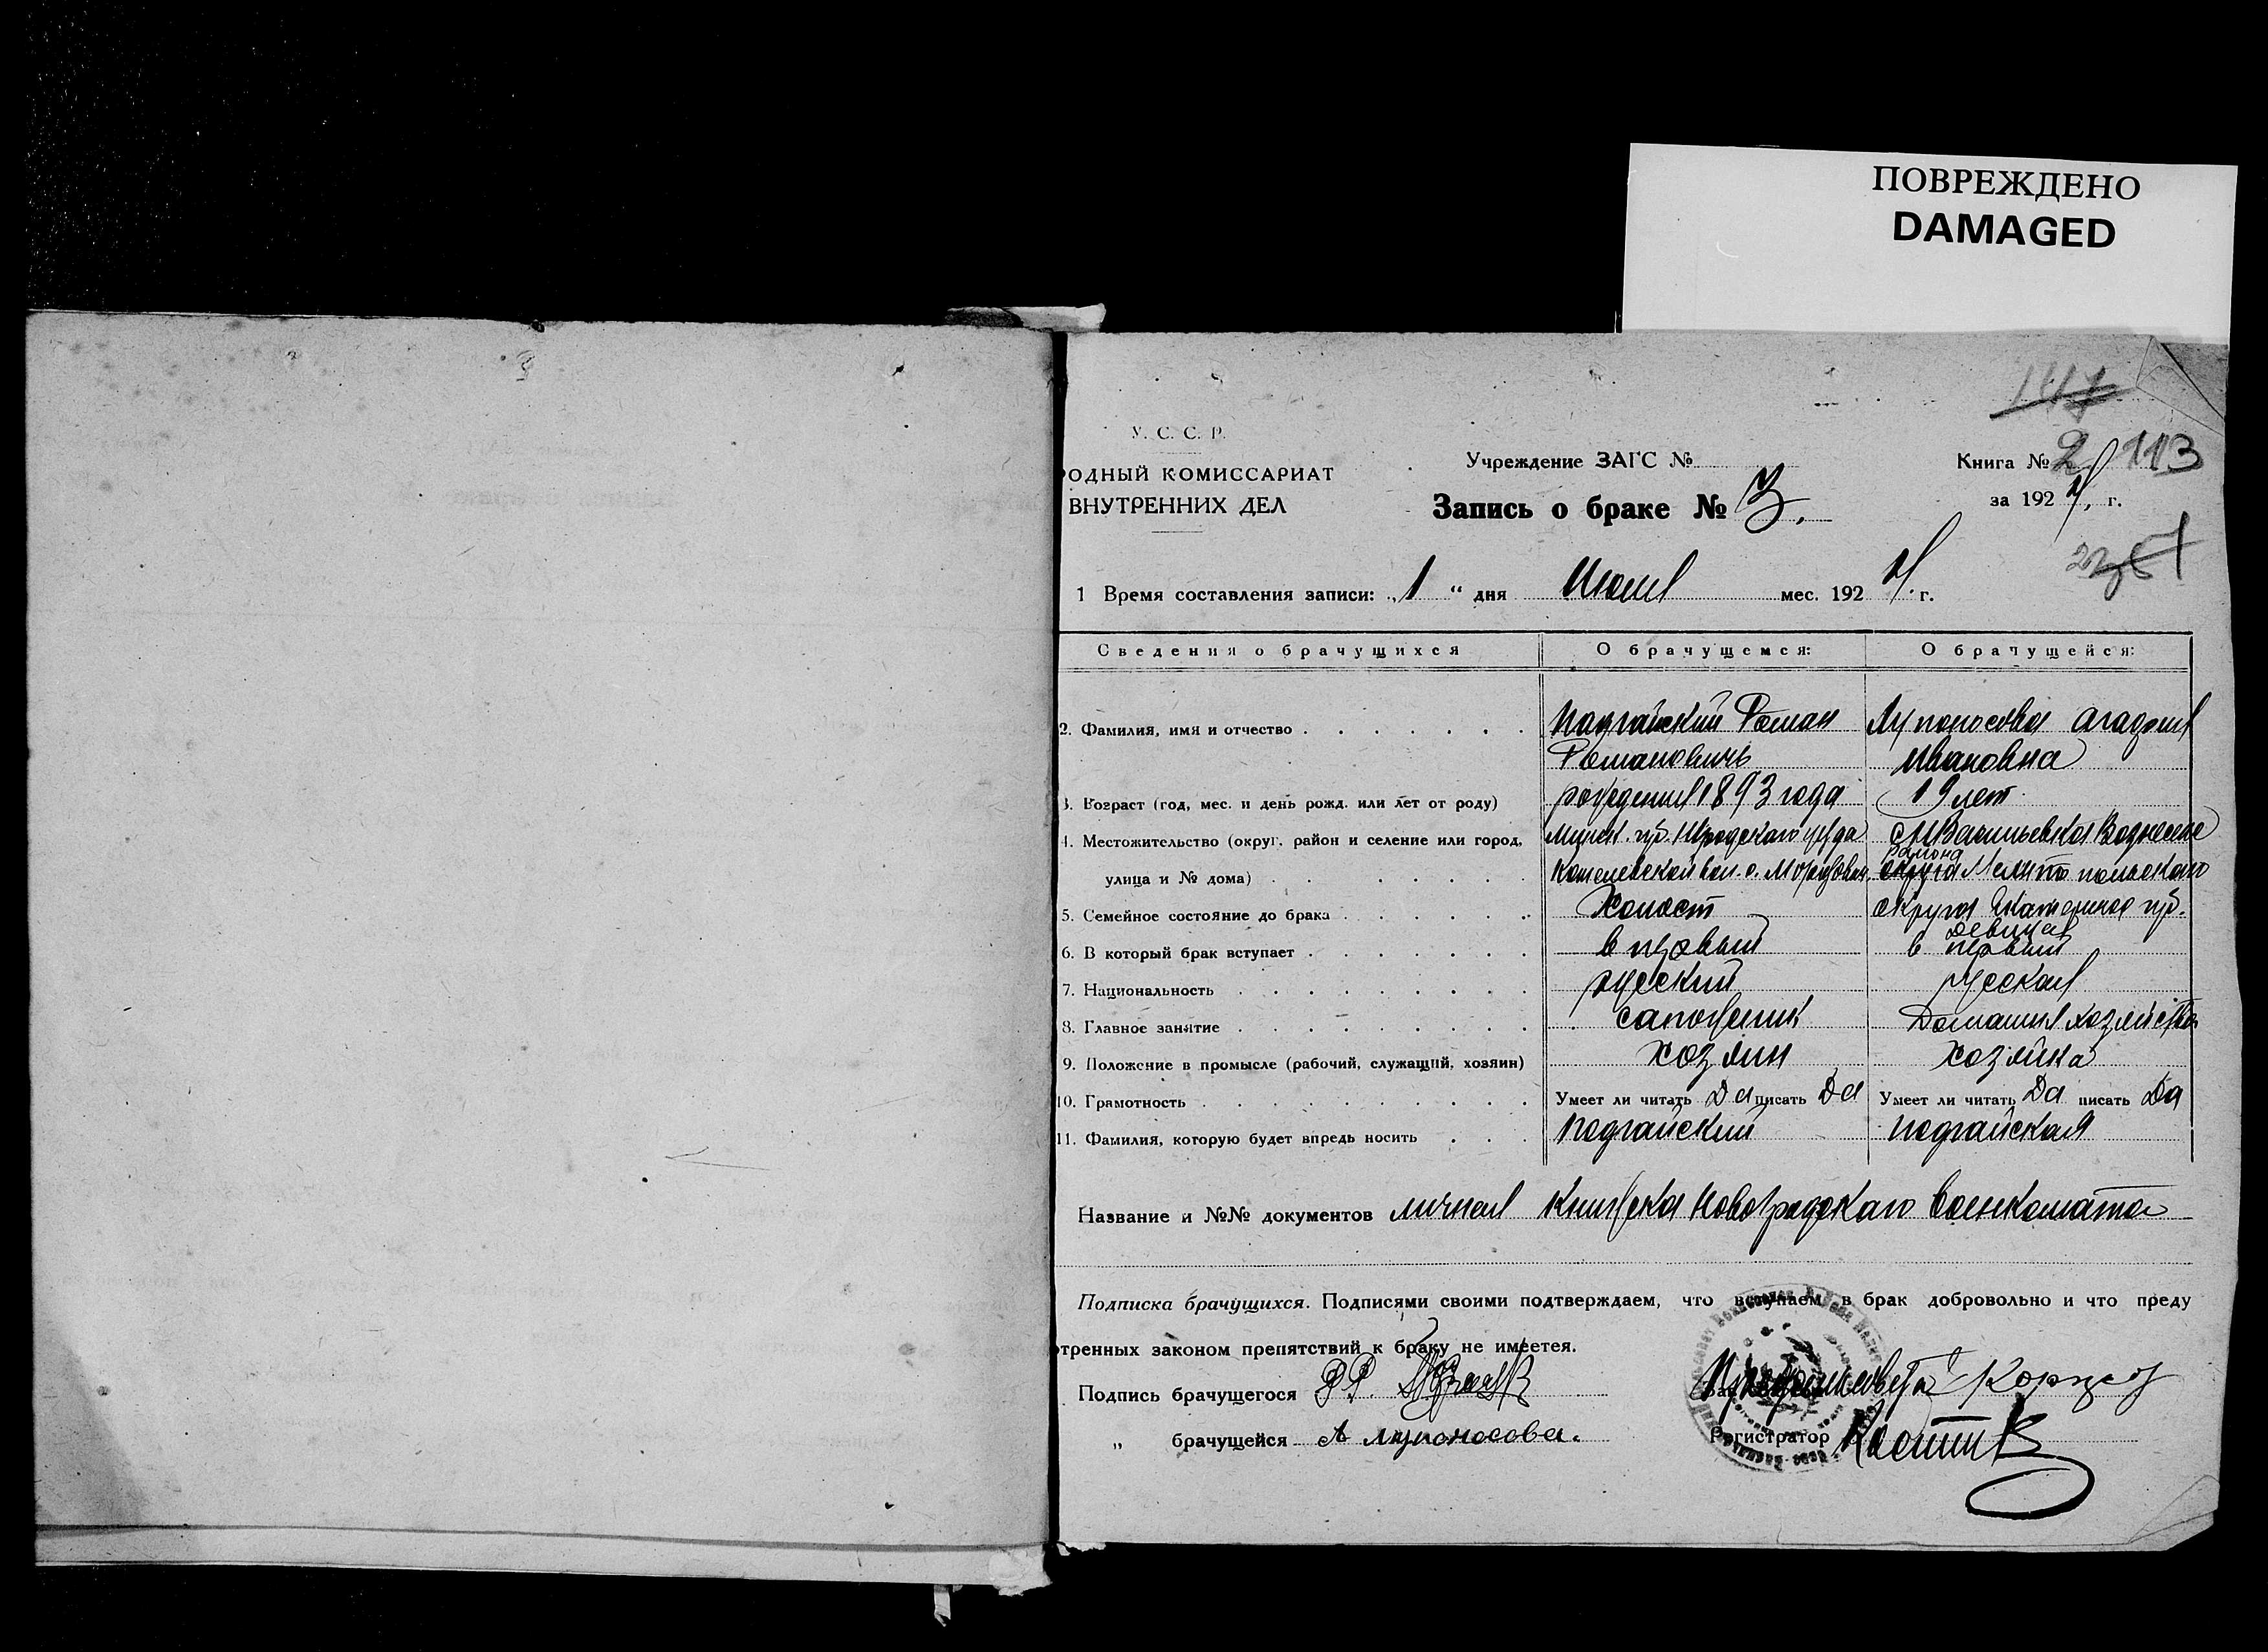 ПОВРЕЖДЕНО
DAMAGED
У. С. С. Р.
ОДНЫЙ КОМИССАРИАТ
ВНУТРЕННИХ ДЕЛ
Учреждение ЗАГС №
Запись о браке № 3.
147
Книга № 2 113
за 1924, г.
1 Время составления записи: „ 1 “ дня Июля мес. 1924. г.
Сведения о брачущихся О брачущемся: О брачущейся:
2. Фамилия, имя и отчество Подгайский Роман Лупоносова
Романовичь Ивановна
3. Возраст (год, мес. и день рожд. или лет от роду) рождения 1893 года 19 лет
4. Местожительство (округ, район и селение или город, Минск. губ. уезда Васильевка
района
улица и № дома) вол. с. округа Мелитопольского
5. Семейное состояние до брака Холост округа губ.
девица
6. В который брак вступает в первый в первый
7. Национальность русский русская
8. Главное занятие сапожник Домашня хозяйства
9. Положение в промысле (рабочий, служащий, хозяин) хозяин хозяйка
10. Грамотность Умеет ли читать Да писать Да Умеет ли читать Да писать Да
11. Фамилия, которую будет впредь носить Подгайский Подгайская
Название и №№ документов личная книжка военкомата
Подписка брачущихся. Подписями своими подтверждаем, что вступаем в брак добровольно и что преду
тренных законом препятствий к браку не имеется.
Подпись брачущегося РР.
„ брачущейся А Лупоносова.
Регистратор